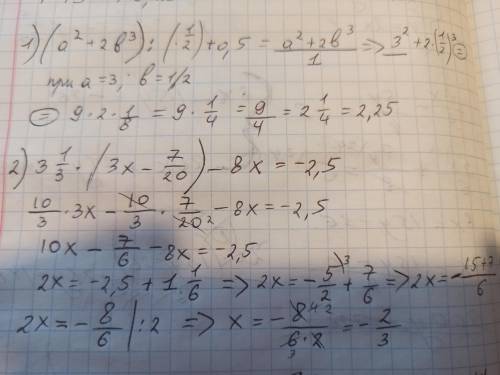 1) (a² + 2b³) : (· 1/2) + 0,5 = (a² + 2b³)/1 => 3² + 2·(1/2)³ =
при a = 3; b = 1/2
= 9 · 2 · 1/8 = 9 · 1/4 = 9/4 = 2 1/4 = 2,25
2) 3 1/3 · (3x - 7/20) - 8x = -2,5
10/3 · 3x - 10/3 · 7/20 2 - 8x = -2,5
10x - 7/6 - 8x = -2,5
2x = -2,5 + 1 1/6 => 2x = - 5/2 \3 + 7/6 => 2x = - 15+7/6
2x = - 8/6 | : 2 => x = - 8 4 2/6·2 3 = - 2/3